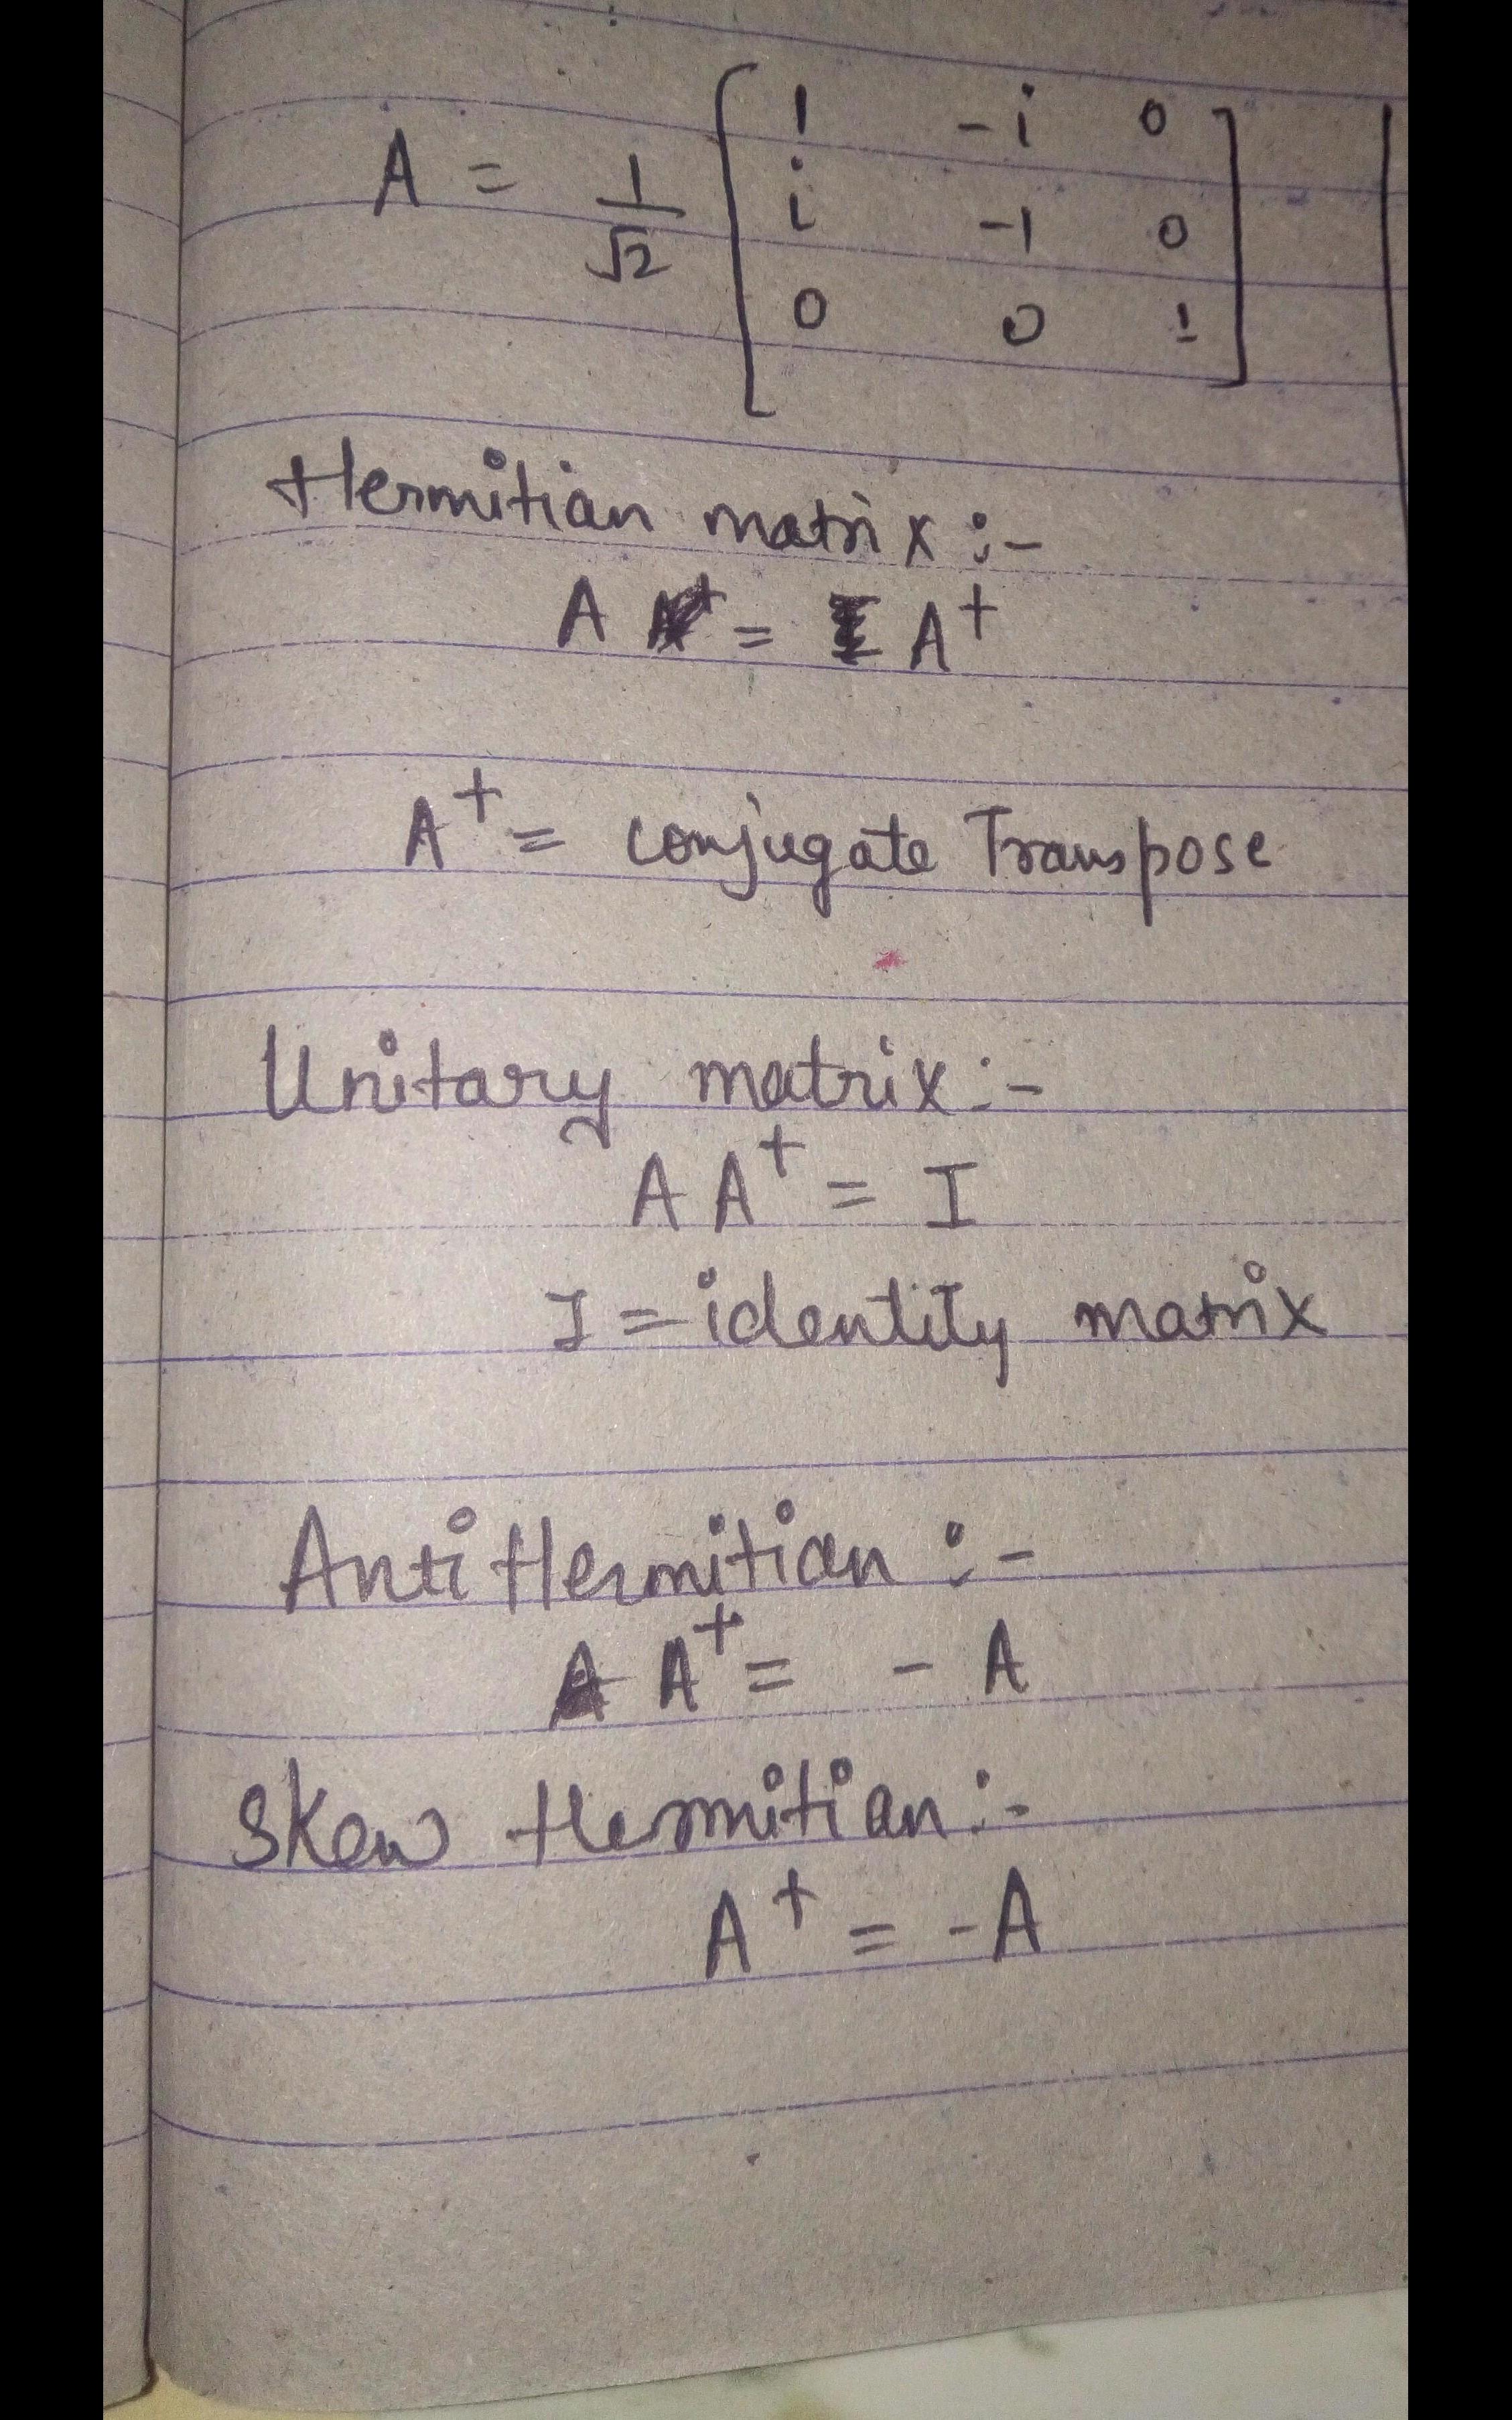 A = 1/√2 [ 1 -i 0
i -1 0
0 0 1 ]
Hermitian matrix :-
A = A⁺
A⁺ = conjugate Transpose
Unitary matrix :-
A A⁺ = I
I = identity matrix
Anti Hermitian :-
A⁺ = - A
Skew Hermitian :-
A⁺ = -A